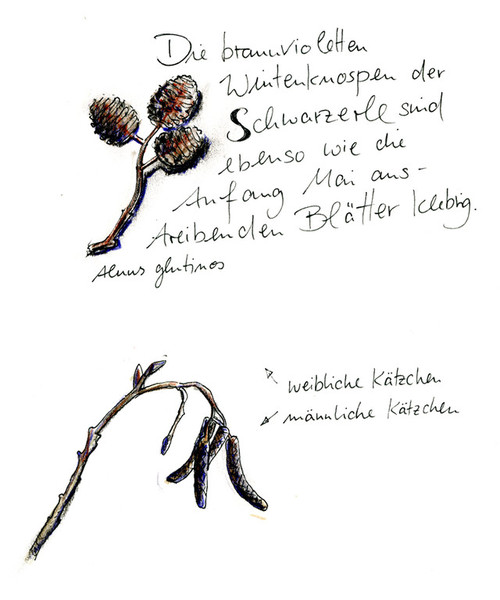 Die braunvioletten
Winterknospen der
Schwarzerle sind
ebenso wie die
Anfang Mai aus-
treibenden Blätter klebrig.
Alnus glutinos
weibliche Kätzchen
männliche Kätzchen